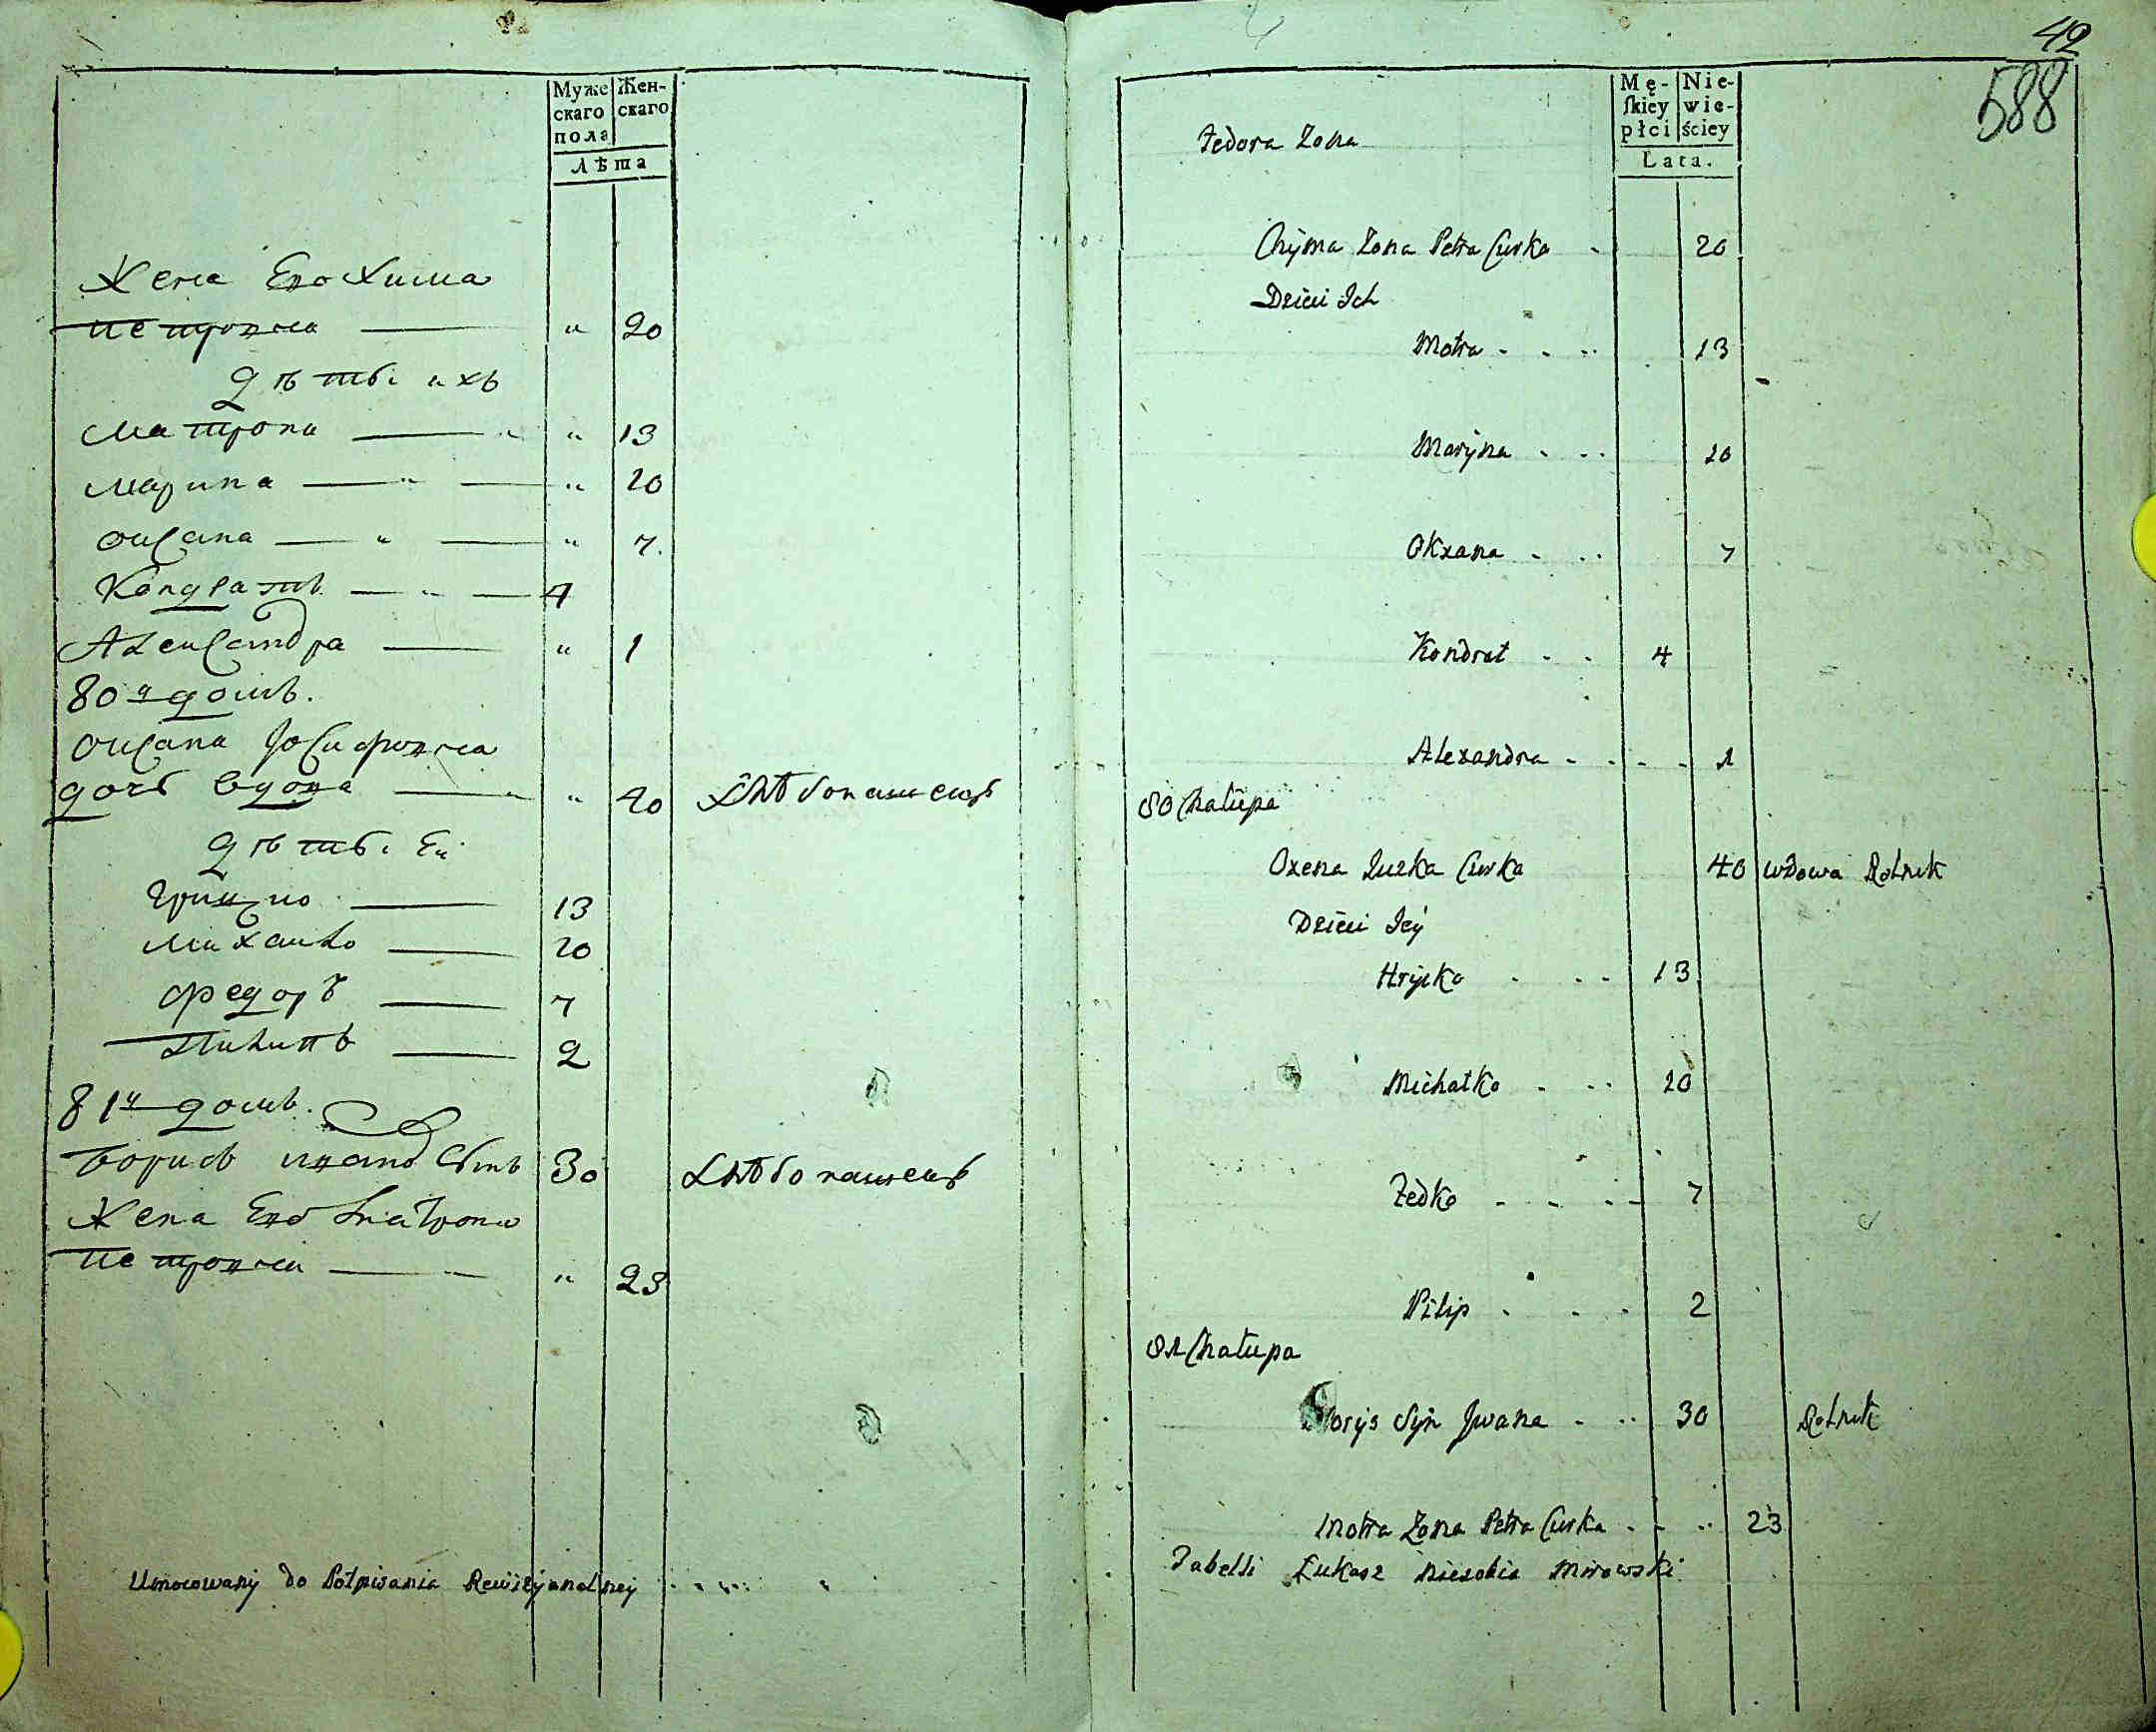 Муже Жен-
скаго скаго
пола
Лѣта
Жена Его Хима
Петровна — " 20
Дѣти ихъ
Матрона — " 13
Марина — " 10
Оксана — " 7.
Кондратъ — 4
Александра — " 1
80й домъ.
Оксана Іосифовна
дочь вдова — " 40 хлѣбопашецъ
Дѣти Ея
Грицко — 13
Михайло — 10
Федоръ — 7
Пилипъ — 2
81й домъ.
Борисъ Иванов сынъ 30 хлѣбопашецъ
Жена Его Матрона
Петровна — " 23
Umocowany do Potpisania Rewizyonalney
42
588
Mę- Nie-
skiey wie-
płci ściey
Lata.
Fedora Zona
Chyma Zona Petra Curka 20
Dzieci Ich
Motra - - - 13
Maryna - - - 10
Oxana - - - 7
Kondrat - - 4
Alexandra - - - - 1
80 Chałupa
Oxena Juzka Curka 40 wdowa Rolnik
Dzieci Jey
Hrycko - - - 13
Michałko - - - 10
Fedko - - - - 7
Pilip - - - 2
81 Chałupa
Borys Syn Jwana - - - 30 Rolnik
Motra Zona Petra Curka - - - 23
Tabelli Łukasz Mirowski